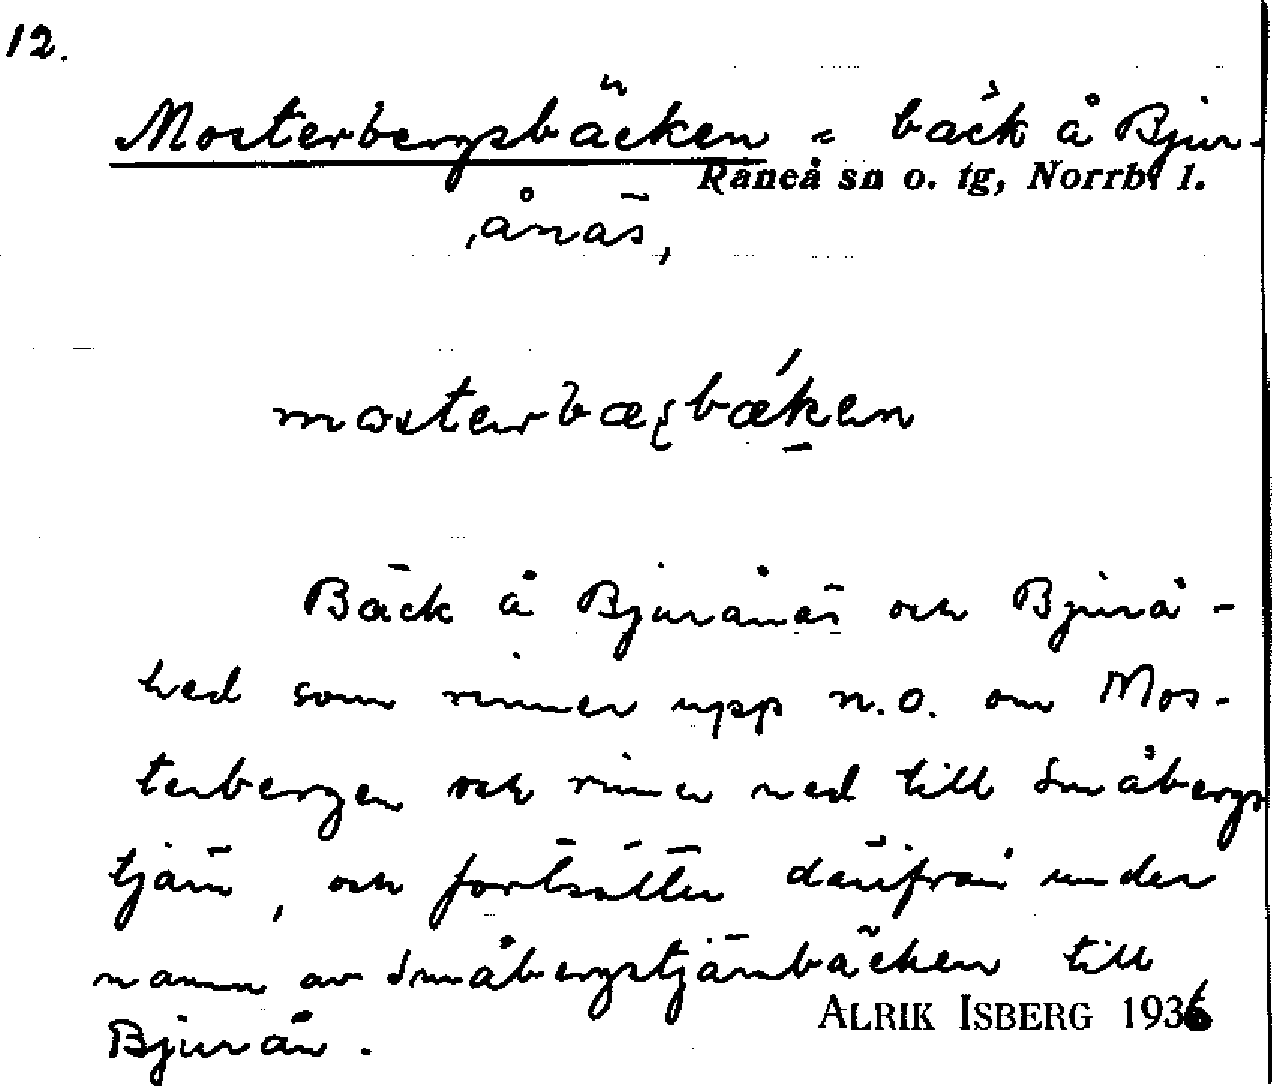 12.
Mosterbergsbäcken = bäck å Bjur-
Råneå sn o. tg, Norrb. l.
ånäs,
mosterbæʂbæken
Bäck å Bjurånäs och Bjurå-
hed som rinner upp n.o. om Mos-
terbergen och rinner ned till Småbergs
tjärn, och fortsätter därifrån under
namn av Småbergstjärnbäcken till
Bjurån.
ALRIK ISBERG 1936